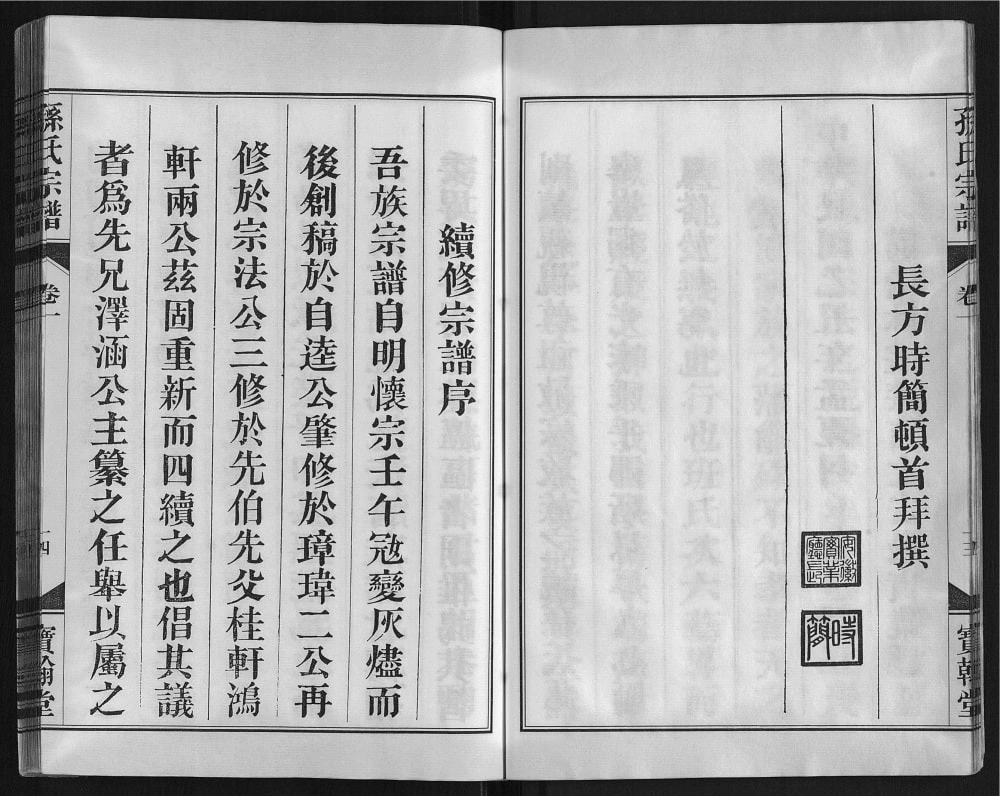 孫氏宗譜
卷一
十三
寶翰堂
長方時簡頓首拜撰
安徽實業廳長
時簡
續修宗譜序
吾族宗譜自明懷宗壬午冦變灰燼而
後創稿於自逵公肇修於璋瑋二公再
修於宗法公三修於先伯先父桂軒鴻
軒兩公茲固重新而四續之也倡其議
者爲先兄澤涵公主纂之任舉以屬之
孫氏宗譜
卷一
十四
寶翰堂